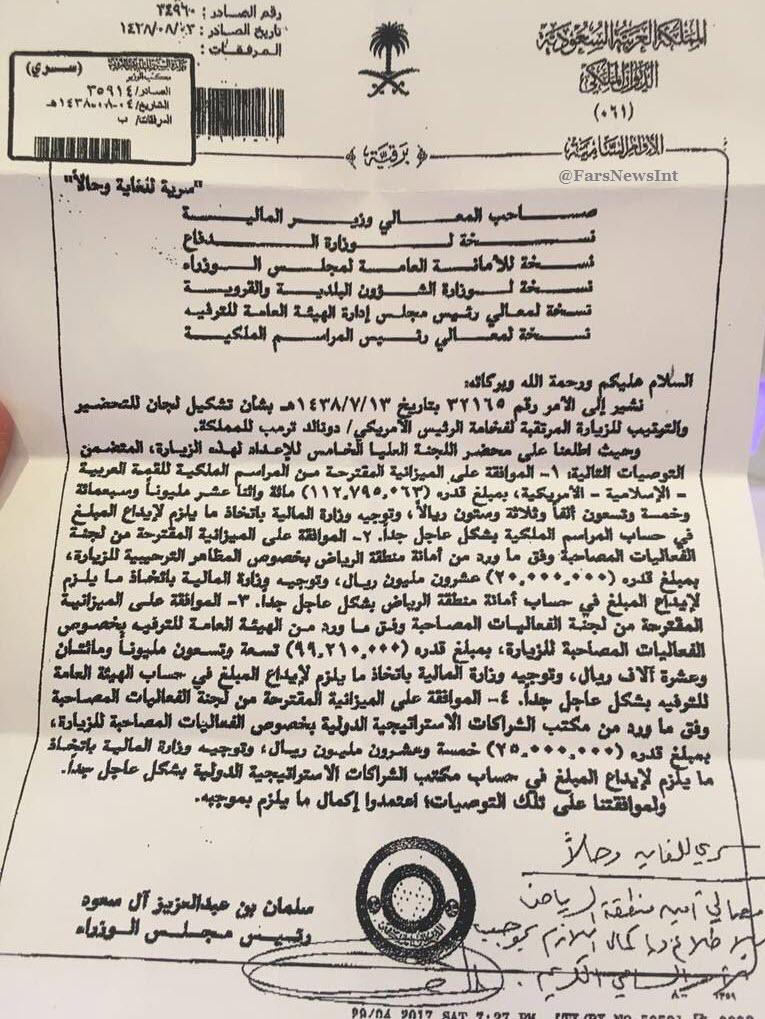 المملكة العربية السعودية
الديوان الملكي
(٠٦١)
الأوامر السامية
رقم الصادر : ٣٤٩٦٠
تاريخ الصادر : ١٤٣٨/٠٨/٠٣
المرفقات :
(سري)
مكتب الوزير
الصادر/ ٣٥٩١٤
التاريخ/ ٠٤-٠٨-١٤٣٨هـ
المرفقات/ ب
برقية
@FarsNewsInt
"سرية للغاية وحالاً"
صاحب المعالي وزير المالية
نسخة لوزارة الدفاع
نسخة للأمانة العامة لمجلس الوزراء
نسخة لوزارة الشؤون البلدية والقروية
نسخة لمعالي رئيس مجلس إدارة الهيئة العامة للترفيه
نسخة لمعالي رئيس المراسم الملكية
السلام عليكم ورحمة الله وبركاته:
نشير إلى الأمر رقم ٣٢١٦٥ بتاريخ ١٤٣٨/٧/١٣هـ بشأن تشكيل لجان للتحضير
والترتيب للزيارة المرتقبة لفخامة الرئيس الأمريكي/ دونالد ترمب للمملكة.
وحيث اطلعنا على محضر اللجنة العليا الخامس للإعداد لهذه الزيارة، المتضمن
التوصيات التالية: ١- الموافقة على الميزانية المقترحة من المراسم الملكية للقمة العربية
- الإسلامية - الأمريكية، بمبلغ قدره (١١٢,٧٩٥,٠٦٣) مائة واثنا عشر مليوناً وسبعمائة
وخمسة وتسعون ألفاً وثلاثة وستون ريالاً، وتوجيه وزارة المالية باتخاذ ما يلزم لإيداع المبلغ
في حساب المراسم الملكية بشكل عاجل جداً. ٢- الموافقة على الميزانية المقترحة من لجنة
الفعاليات المصاحبة وفق ما ورد من أمانة منطقة الرياض بخصوص المظاهر الترحيبية للزيارة،
بمبلغ قدره (٢٠,٠٠٠,٠٠٠) عشرون مليون ريال، وتوجيه وزارة المالية باتخاذ ما يلزم
لإيداع المبلغ في حساب أمانة منطقة الرياض بشكل عاجل جداً. ٣- الموافقة على الميزانية
المقترحة من لجنة الفعاليات المصاحبة وفق ما ورد من الهيئة العامة للترفيه بخصوص
الفعاليات المصاحبة للزيارة، بمبلغ قدره (٩٩,٢١٠,٠٠٠) تسعة وتسعون مليوناً ومائتان
وعشرة آلاف ريال، وتوجيه وزارة المالية باتخاذ ما يلزم لإيداع المبلغ في حساب الهيئة العامة
للترفيه بشكل عاجل جداً. ٤- الموافقة على الميزانية المقترحة من لجنة الفعاليات المصاحبة
وفق ما ورد من مكتب الشراكات الاستراتيجية الدولية بخصوص الفعاليات المصاحبة للزيارة،
بمبلغ قدره (٢٥,٠٠٠,٠٠٠) خمسة وعشرون مليون ريال، وتوجيه وزارة المالية باتخاذ
ما يلزم لإيداع المبلغ في حساب مكتب الشراكات الاستراتيجية الدولية بشكل عاجل جداً.
ولموافقتنا على تلك التوصيات؛ اعتمدوا إكمال ما يلزم بموجبه.
سلمان بن عبدالعزيز آل سعود
رئيس مجلس الوزراء
سري للغاية وحالاً
معالي أمين منطقة الرياض
للاطلاع وإكمال اللازم بموجب
الأمر السامي الكريم.
29/04 2017 SAT 7:27 PM